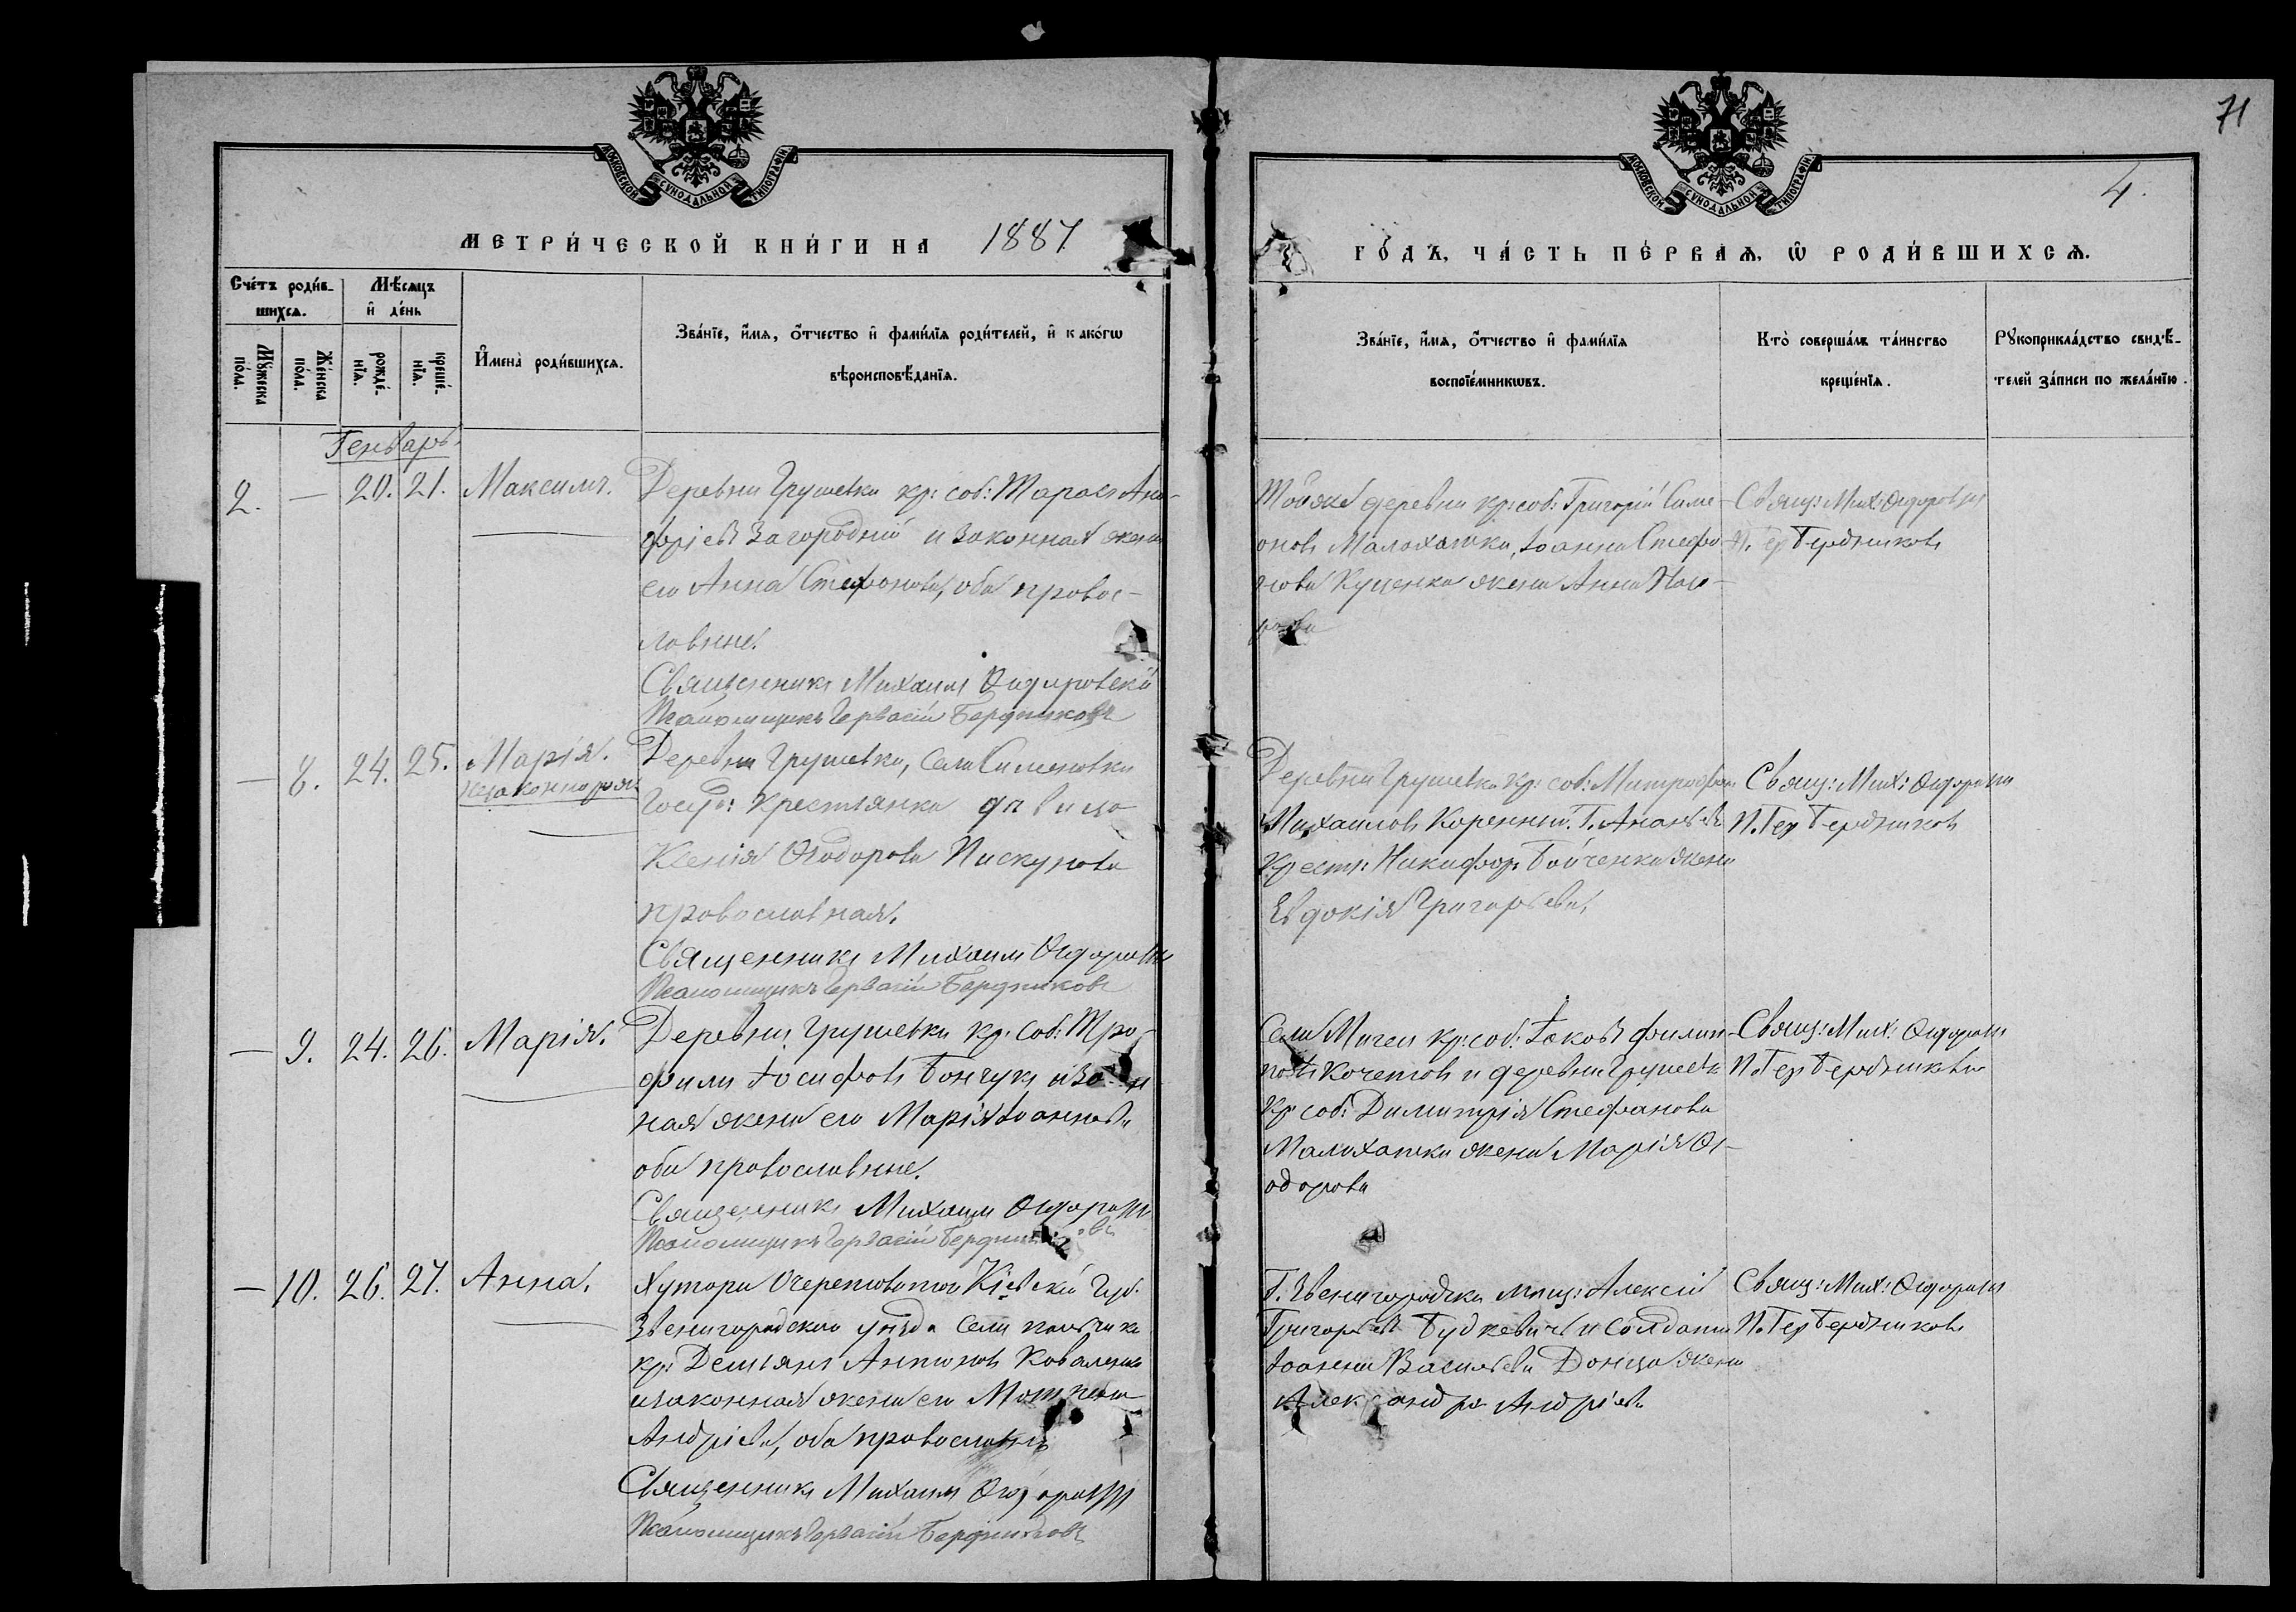 71
4.
МОСКОВСКОЙ СѴНОДАЛЬНОЙ ТИПОГРАФІИ
МОСКОВСКОЙ СѴНОДАЛЬНОЙ ТИПОГРАФІИ
МЕТРИ́ЧЕСКОЙ КНИ́ГИ НА 1887
ГО́ДЪ, ЧА́СТЬ ПЕ́РВАѦ, Ѽ РОДИ́ВШИХСѦ.
Сче́тъ роди́в-
шихсѧ.
Мѣ́сѧцъ
и҆ де́нь
Мꙋ́жеска
по́ла.
Же́нска
по́ла.
рожде́-
нїѧ.
креще́-
нїѧ.
И҆мена̀ роди́вшихсѧ.
Зва́нїе, и҆́мѧ, ѻ҆́тчество и҆ фами́лїѧ роди́телей, и҆ како́гѡ
вѣроисповѣ́данїѧ.
Зва́нїе, и҆́мѧ, ѻ҆́тчество и҆ фами́лїѧ
воспрїе́мникѡвъ.
Кто̀ соверша́лъ та́инство
креще́нїѧ.
Рꙋкоприкла́дство свидѣ́-
телей за́писи по жела́нїю.
Генварь.
2. — 20. 21. Максимъ.
Деревни Грушевки кр: соб: Тарасъ Ано-
фріевъ Загородній и законная жена
его Анна Стефанова, оба правос-
лавные.
Священникъ Михаилъ Ѳедоровскій
Псаломщикъ Гервасій Бердниковъ
Тойже деревни кр: соб: Григорій Симе-
оновъ Малохатка, Іоанна Стефа-
нова Куценка жена Анна
Свящ: Мих: Ѳедоровскій
П. Гер Бердниковъ
— 8. 24. 25. Марія.
незаконнорож
Деревни Грушевки, села Сименовки
Госуд: крестьянка дѣвица
Ксенія Ѳеодорова Пискунова
православная.
Священникъ Михаилъ Ѳедоровскій
Псаломщикъ Гервасій Бердниковъ
Деревни Грушевки кр: соб: Митрофанъ
Михаиловъ Коренный. Г. Ананьева
Крест: Никифора Бойченка жена
Евдокія Григорьева,
Свящ: Мих: Ѳедоровскій
П. Гер Бердниковъ
— 9. 24. 26. Марія.
Деревни Грушевки кр: соб: Тро-
филъ Іосифовъ Бончукъ и закон
ная жена его Марія Іоаннова
оба православные.
Священникъ Михаилъ Ѳедоровскій
Псаломщикъ Гервасій Бердниковъ
Села Мигеи кр: соб: Іаковъ Филип-
повъ Кочетовъ и деревни Грушевки
кр: соб: Димитрія Стефанова
Малохатки жена Марія Ѳе-
одорова
Свящ: Мих: Ѳедоровскій
П. Гер Бердниковъ
— 10. 26. 27. Анна.
Хутора Очеретоватаго Кіевской Губ.
Звенигородскаго уѣзда села
кр: Демьянъ Антоновъ Коваленко
и законная жена его
Андріева, оба православные
Священникъ Михаилъ Ѳедоровскій
Псаломщикъ Гервасій Бердниковъ
Г. Звенигородки мѣщ: Алексій
Григорьевъ Будкевичъ и солдата
Іоанна Васильева Донца жена
Александра Андріева
Свящ: Мих: Ѳедоровскій
П. Гер Бердниковъ